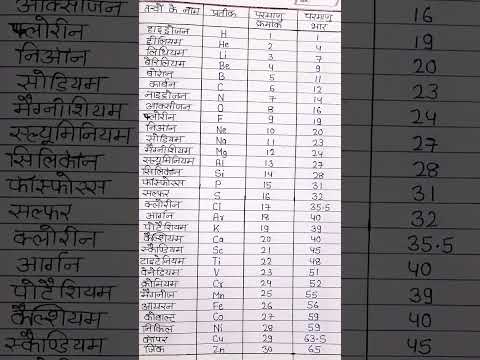 तत्वों के नाम प्रतीक परमाणु क्रमांक परमाणु भार
हाइड्रोजन H 1 1
हीलियम He 2 4
लिथियम Li 3 7
बेरिलियम Be 4 9
बोरॉन B 5 11
कार्बन C 6 12
नाइट्रोजन N 7 14
ऑक्सीजन O 8 16
फ्लोरीन F 9 19
निऑन Ne 10 20
सोडियम Na 11 23
मैग्नीशियम Mg 12 24
एल्यूमिनियम Al 13 27
सिलिकॉन Si 14 28
फॉस्फोरस P 15 31
सल्फर S 16 32
क्लोरीन Cl 17 35.5
आर्गन Ar 18 40
पोटैशियम K 19 39
कैल्शियम Ca 20 40
स्कैण्डियम Sc 21 45
टाइटेनियम Ti 22 48
वेनेडियम V 23 51
क्रोमियम Cr 24 52
मैंगनीज Mn 25 55
आयरन Fe 26 56
कोबाल्ट Co 27 59
निकिल Ni 28 59
कॉपर Cu 29 63.5
जिंक Zn 30 65
ऑक्सीजन 16
फ्लोरीन 19
निऑन 20
सोडियम 23
मैग्नीशियम 24
एल्यूमिनियम 27
सिलिकॉन 28
फॉस्फोरस 31
सल्फर 32
क्लोरीन 35.5
आर्गन 40
पोटैशियम 39
कैल्शियम 40
स्कैण्डियम 45